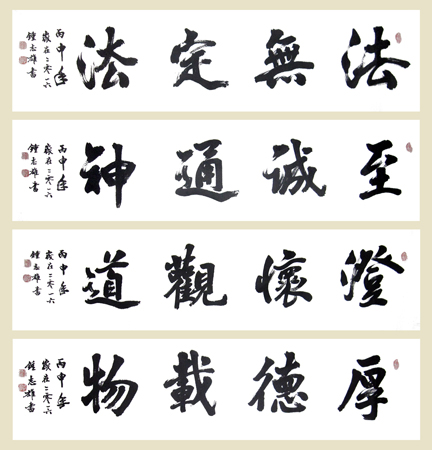 法無定法
丙申年
歲在二〇一六
鍾志雄書
至誠通神
丙申年
歲在二〇一六
鍾志雄書
澄懷觀道
丙申年
歲在二〇一六
鍾志雄書
厚德載物
丙申年
歲在二〇一六
鍾志雄書